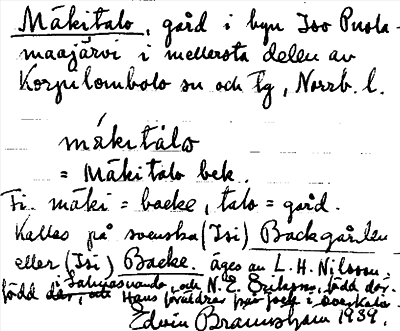 Mäkitalo, gård i byn Iso Puola-
maajärvi i mellersta delen av
Korpilombolo sn och tg, Norrb. l.
mákitálo
= Mäkitalo bek.
Fi. mäki = backe, talo = gård.
Kallas på svenska (Isi) Backgården
eller (Isi) Backe. äges av L. H. Nilsson,
född i Salmusvando, och N. E. Eriksson, född där.
Hans föräldrar
Edvin Brännström 1939.